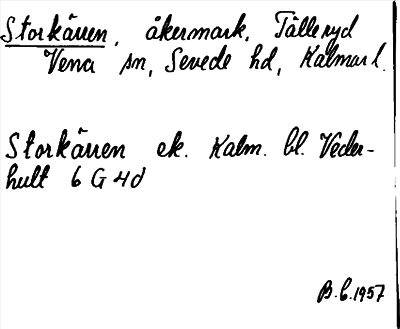 Storkärren, åkermark, Tålleryd
Vena sn, Sevede hd, Kalmar l.
Storkärren ek. Kalm. bl. Veder-
hult 6 G 4d
B.C. 1957